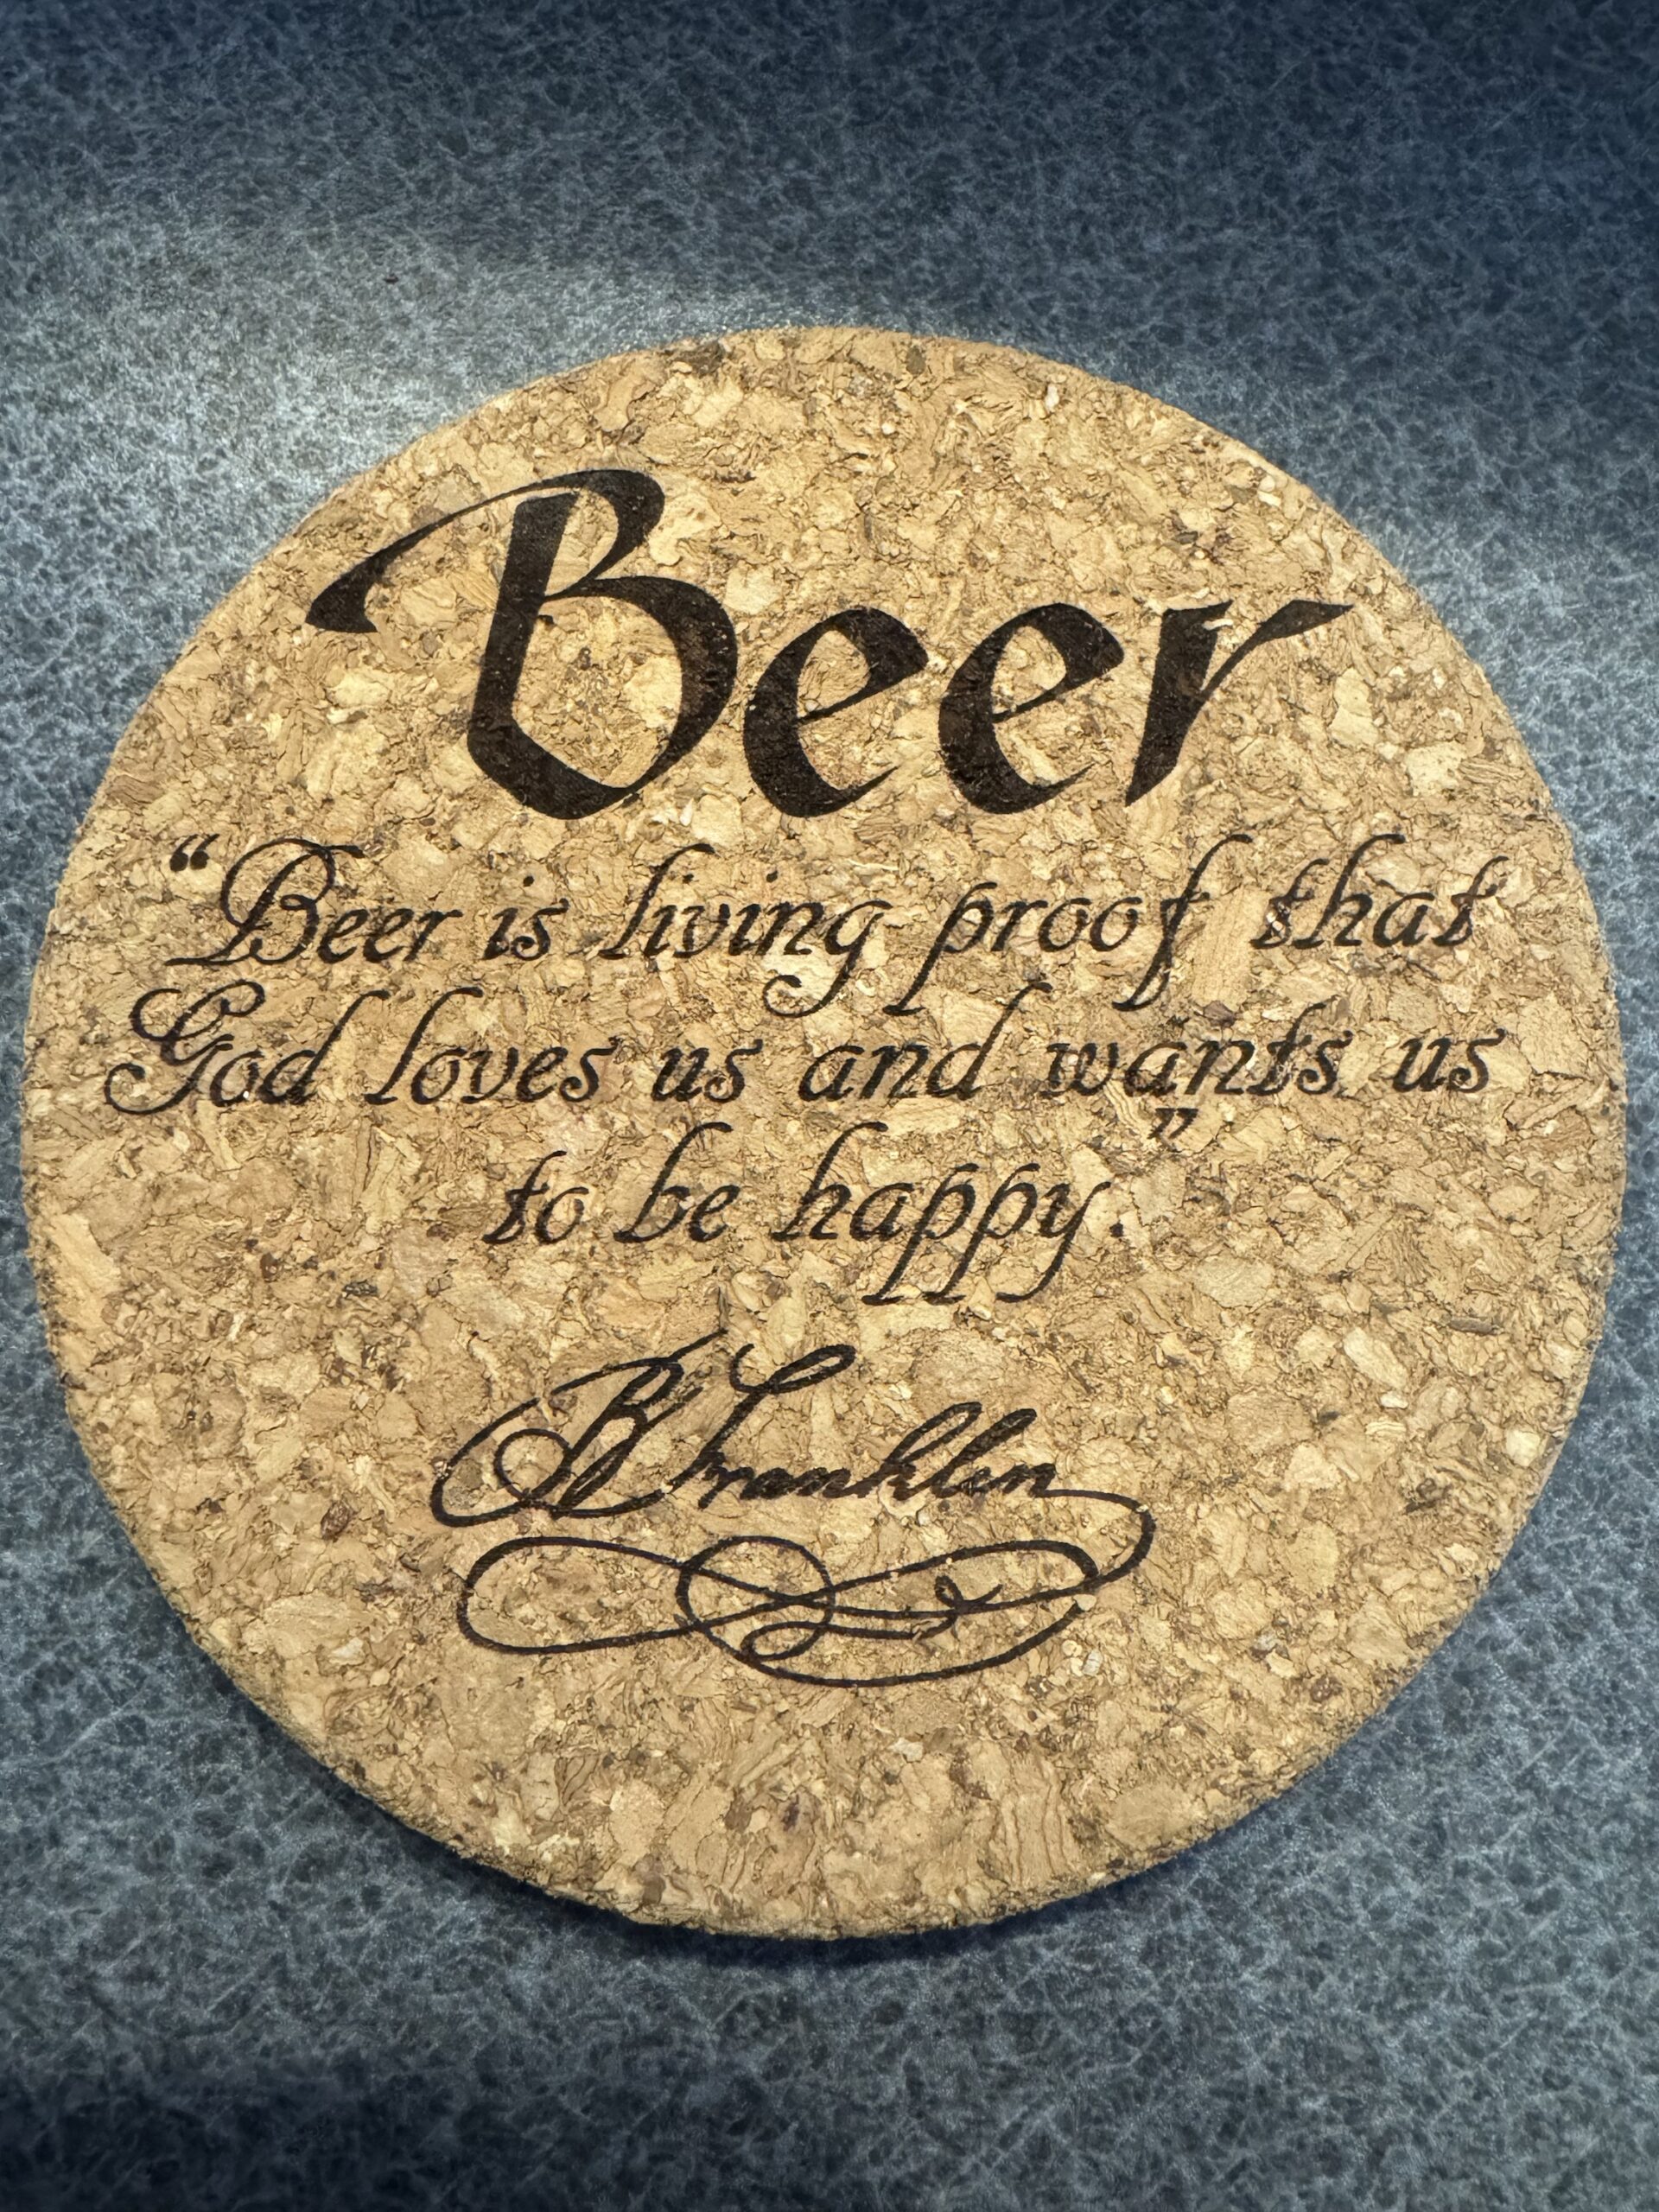 Beer
“Beer is living proof that
God loves us and wants us
to be happy.”
B Franklin